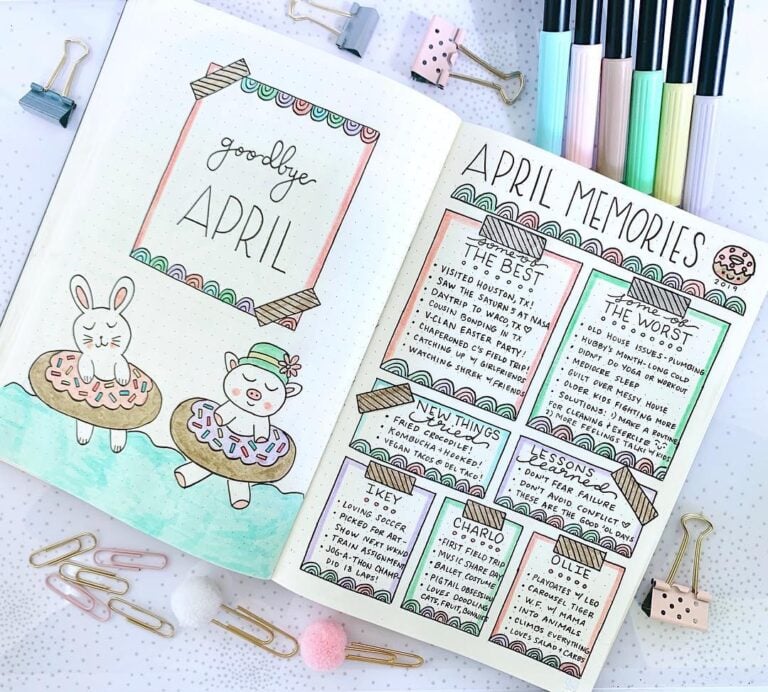 goodbye
APRIL
APRIL MEMORIES
2019
some of
THE BEST
• VISITED HOUSTON, TX!
• SAW THE SATURN 5 AT NASA
• DAYTRIP TO WACO, TX ♡
• COUSIN BONDING IN TX
• V-CLAN EASTER PARTY!
• CHAPERONED C'S FIELD TRIP!
• CATCHING UP W/ GIRLFRIENDS
• WATCHING SHREK W/ FRIENDS
some of
THE WORST
• OLD HOUSE ISSUES - PLUMBING
• HUBBY'S MONTH-LONG COLD
• DIDN'T DO YOGA OR WORKOUT
• MEDIOCRE SLEEP
• GUILT OVER MESSY HOUSE
• OLDER KIDS FIGHTING MORE
• SOLUTIONS: 1) MAKE A ROUTINE
FOR CLEANING + EXERCISE
2) MORE FEELINGS TALKS W/ KIDS
NEW THINGS
tried
• FRIED CROCODILE!
• KOMBUCHA + HOOKED!
• VEGAN TACOS @ DEL TACO!
LESSONS
learned
• DON'T FEAR FAILURE
• DON'T AVOID CONFLICT ♡
• THESE ARE THE GOOD 'OL DAYS
IKEY
• LOVING SOCCER
• PICKED FOR ART
SHOW NEXT WKND
• TRAIN ASSIGNMENT
• JOG-A-THON CHAMP-
DID 13 LAPS!
CHARLO
• FIRST FIELD TRIP
• MUSIC SHARE DAY
• BALLET COSTUME
• PIGTAIL OBSESSION
• LOVES DOODLING
CATS, FRUIT, BUNNIES
OLLIE
• PLAYDATES W/ LEO
• CAROUSEL TIGER
W.F. W/ MAMA
• INTO ANIMALS
• CLIMBS EVERYTHING
• LOVES SALAD + CARBS